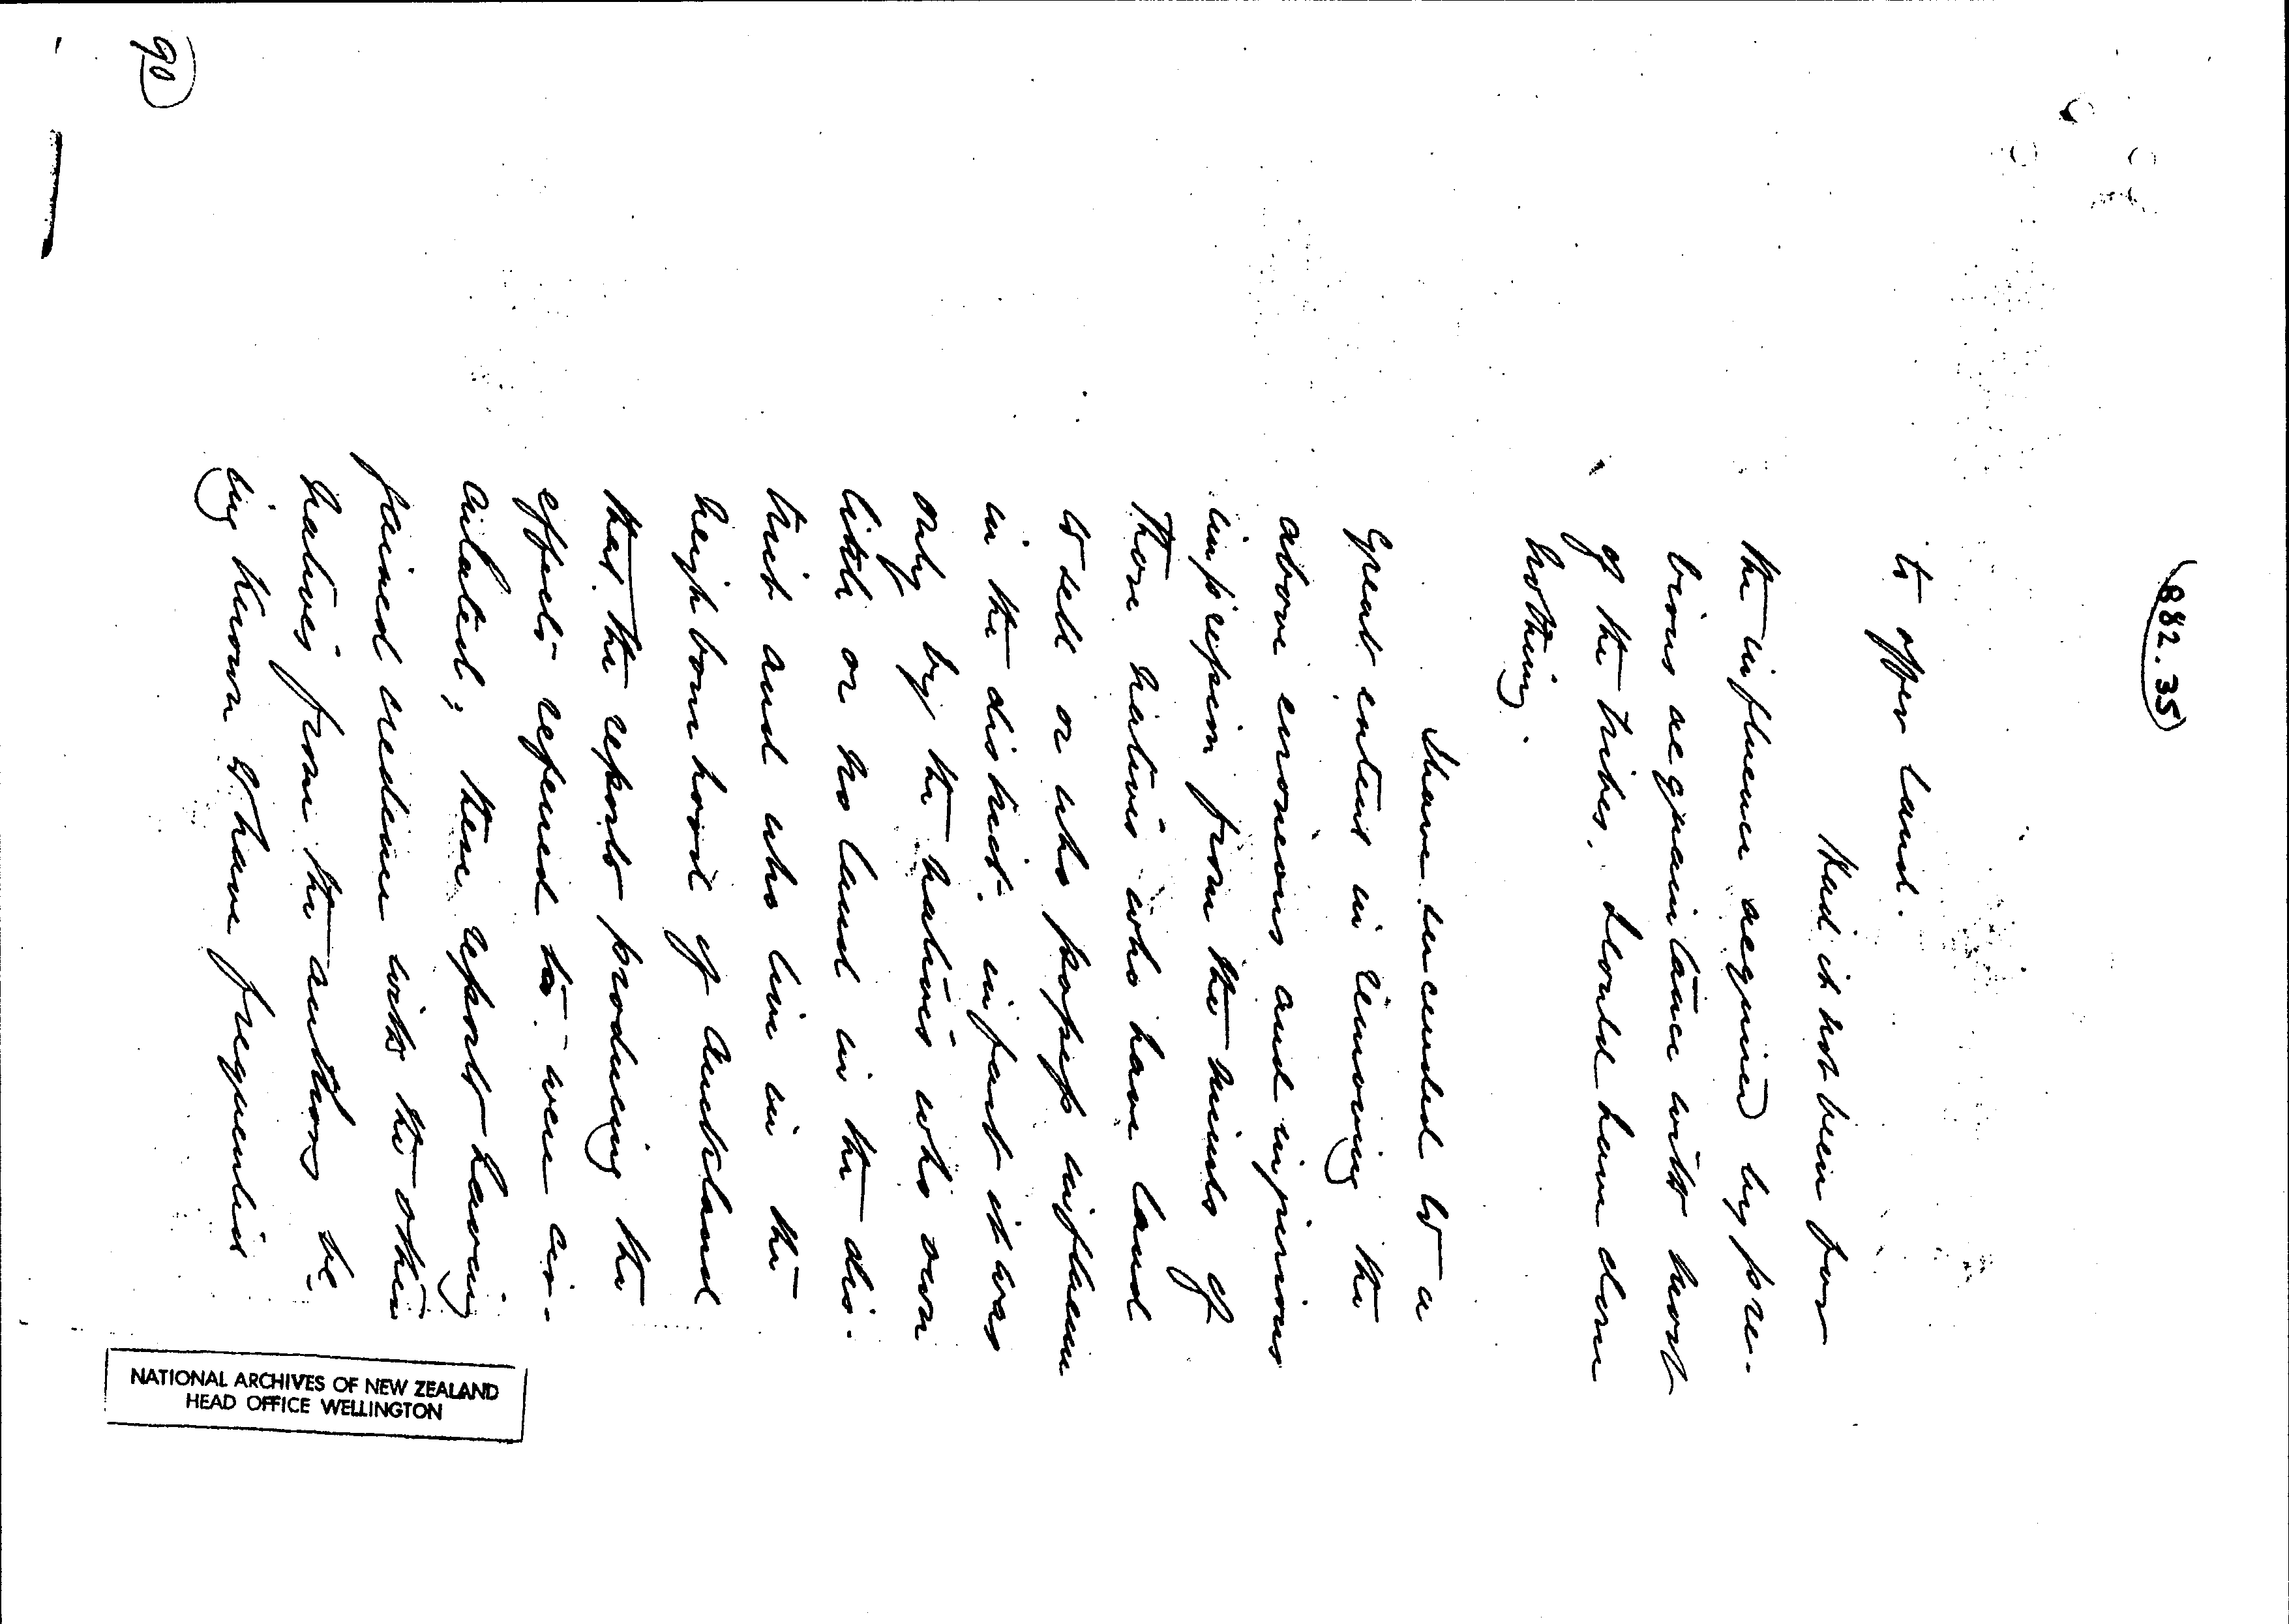 882.35
to offer land.
Had it not been for
the influence acquired by pre-
vious acquaintance with most
of the tribes, I could have done
nothing.
I have succeeded to a
great extent in removing the
above erroneous and injurious
impression from the minds of
those natives who have land
to sell or who possess influence
in the district. in fact it was
only by the natives who own
little or no land in the dis-
trict and who live in the
neighbourhood of Auckland
that the reports producing the
effects referred to were cir-
culated; these reports having
gained credence with the other
natives from the authors be-
ing known to have frequented
90
NATIONAL ARCHIVES OF NEW ZEALAND
HEAD OFFICE WELLINGTON